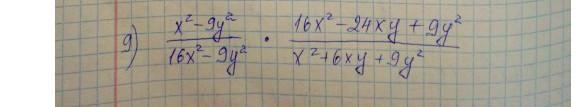 9) (x² - 9y²)/(16x² - 9y²) · (16x² - 24xy + 9y²)/(x² + 6xy + 9y²)